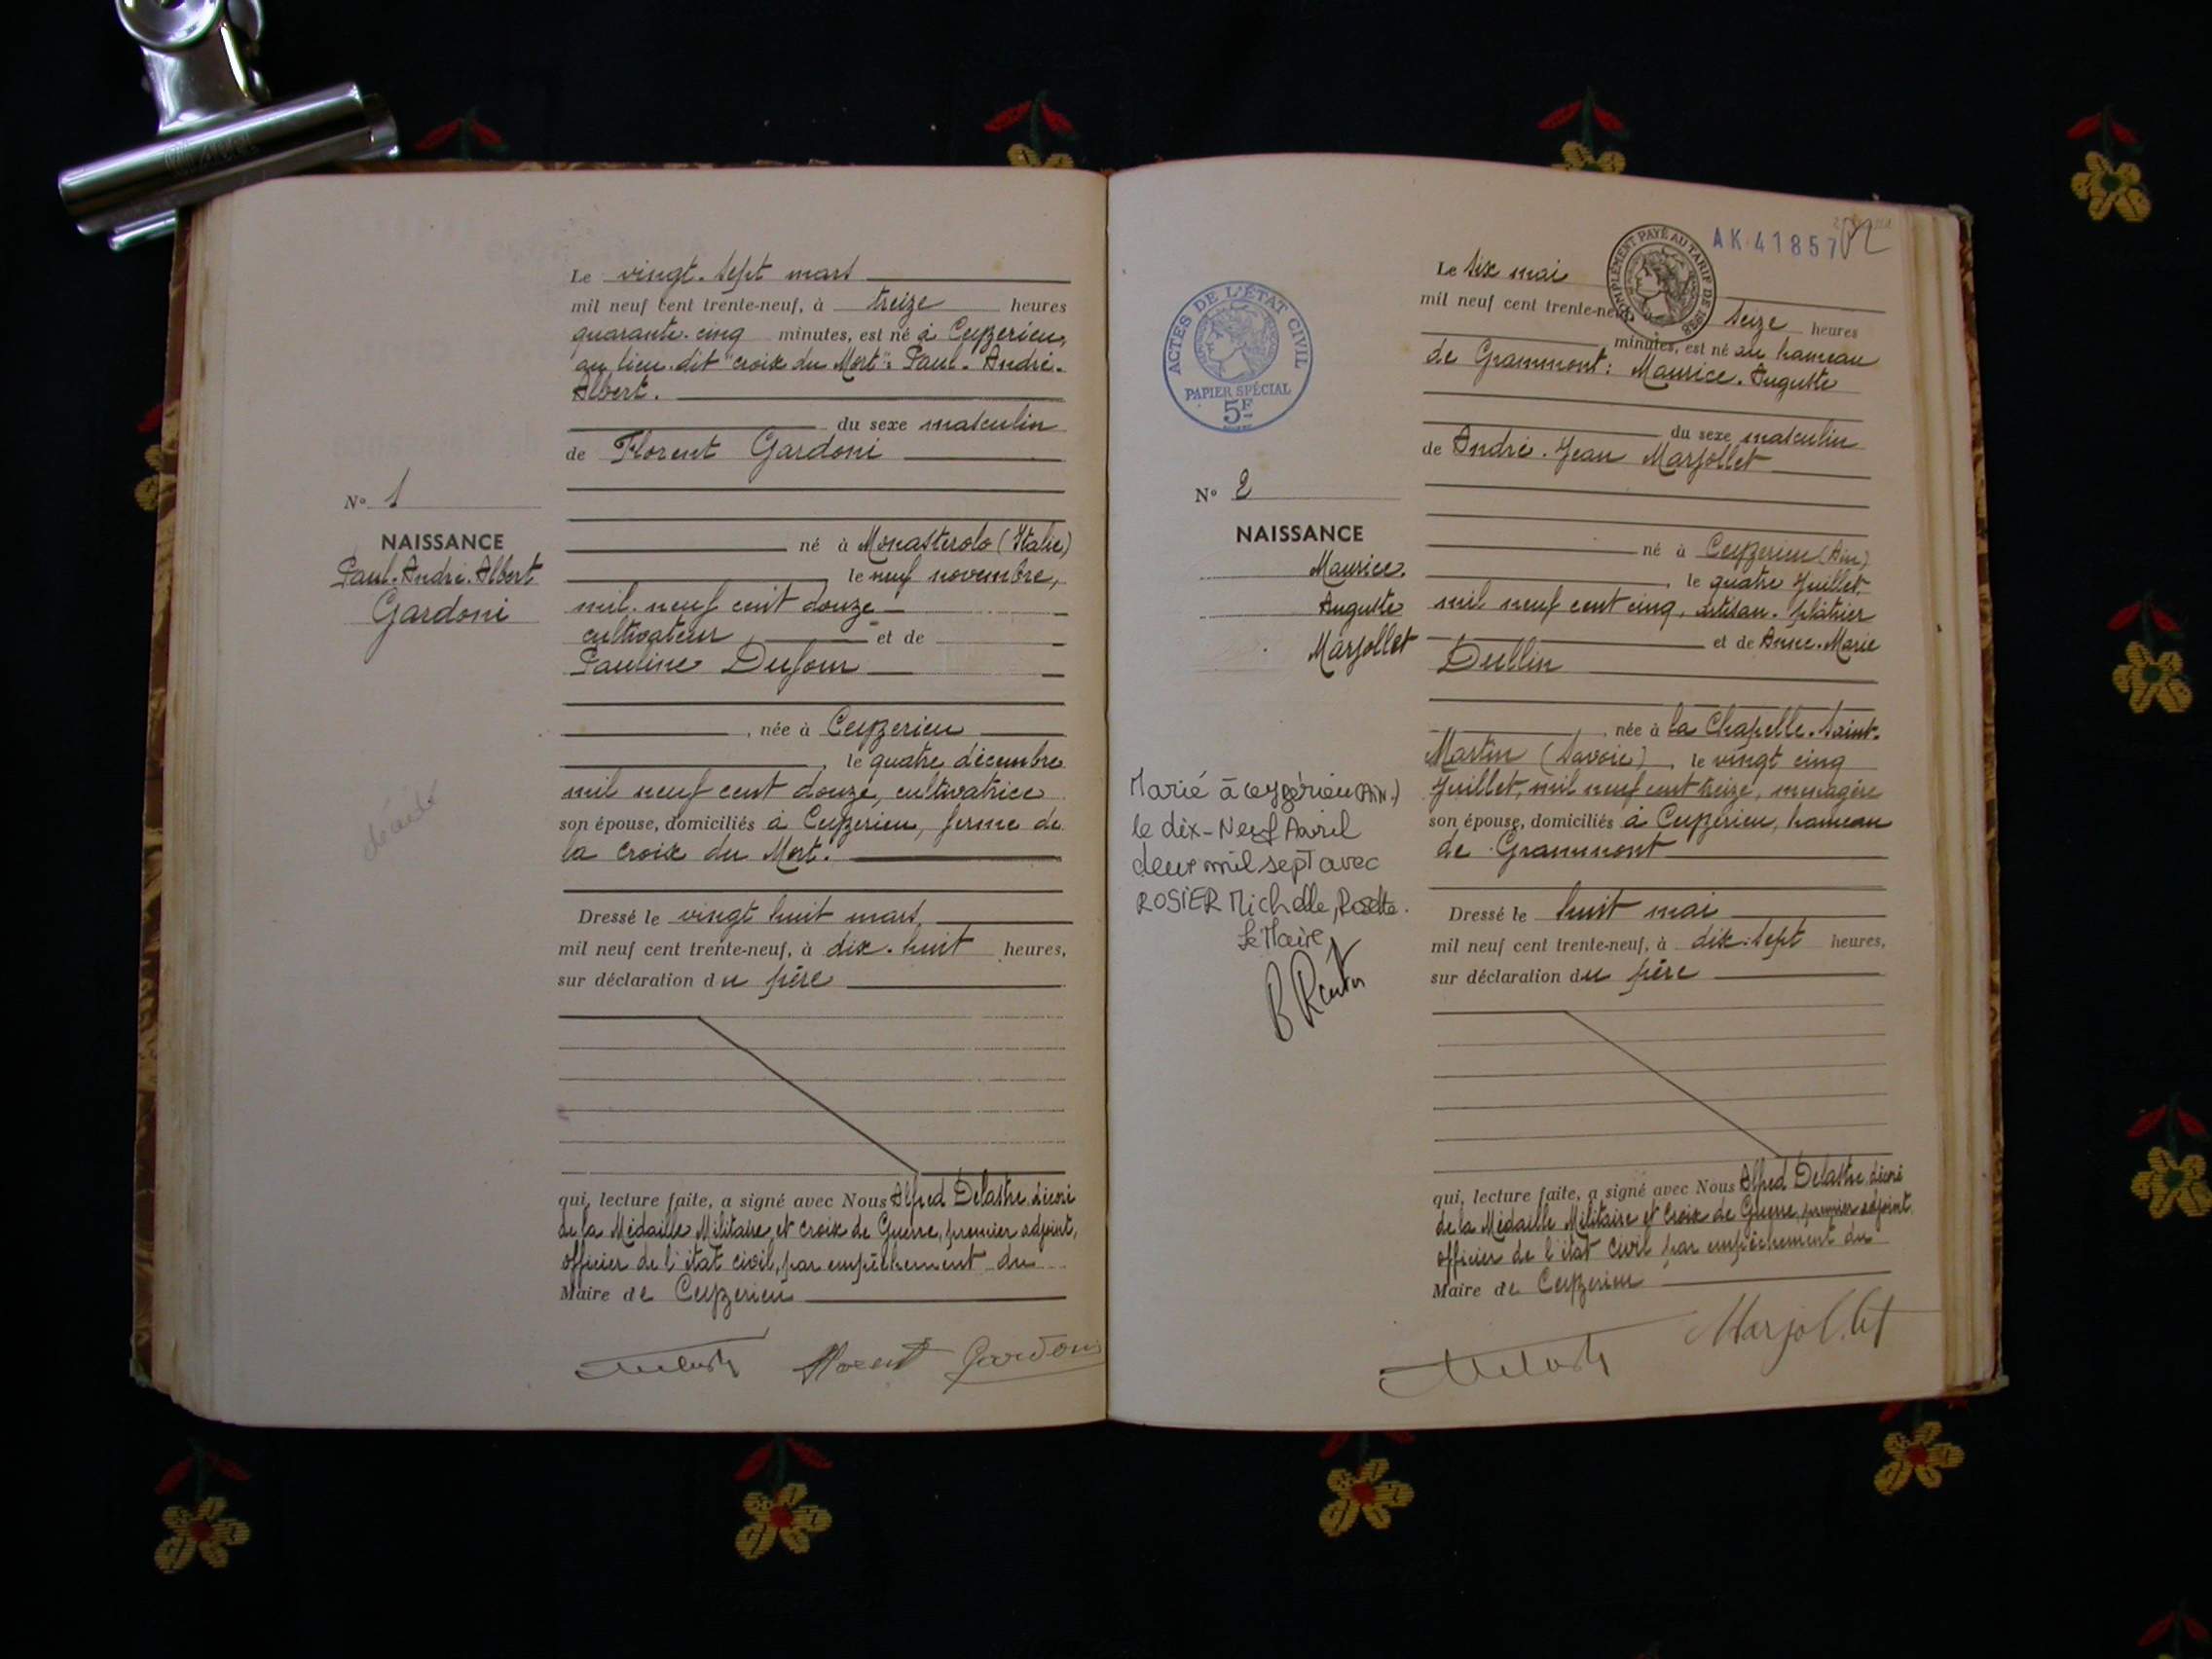 Le vingt-sept mars
mil neuf cent trente-neuf, à treize heures
quarante-cinq minutes, est né à Ceyzerieu,
au lieu-dit "croix du Mort": Paul-André-
Albert.
du sexe masculin
de Florent Gardoni
No 1
NAISSANCE
Paul-André-Albert
Gardoni
né à Monasterolo (Italie)
le neuf novembre,
mil neuf cent douze
cultivateur et de
Pauline Dufour
, née à Ceyzerieu
, le quatre décembre
mil neuf cent douze, cultivatrice
son épouse, domiciliés à Ceyzerieu, ferme de
la croix du Mort.
décédé
Dressé le vingt huit mars,
mil neuf cent trente-neuf, à dix-huit heures,
sur déclaration du père
qui, lecture faite, a signé avec Nous Alfred Delastre, décoré
de la Médaille Militaire et croix de Guerre, premier adjoint,
officier de l'état civil, par empêchement du
Maire de Ceyzerieu
Florent Gardoni
AK 41857
COMPLÉMENT PAYÉ AU TARIF DE 1938
ACTES DE L'ÉTAT CIVIL
PAPIER SPÉCIAL
5F
Le six mai
mil neuf cent trente-neuf, à seize heures
minutes, est né au hameau
de Grammont: Maurice-Auguste
du sexe masculin
de André-Jean Marjollet
No 2
NAISSANCE
Maurice-
Auguste
Marjollet
né à Ceyzerieu (Ain)
, le quatre Juillet
mil neuf cent cinq, artisan-plâtrier
et de Anne-Marie
Dullin
, née à la Chapelle-Saint-
Martin (Savoie), le vingt cinq
Juillet, mil neuf cent treize, ménagère
son épouse, domiciliés à Ceyzerieu, hameau
de Grammont
Marié à ceyzérieu (Ain)
le dix-Neuf Avril
deux mil sept avec
ROSIER Michelle, Rosette.
Le Maire
Dressé le huit mai
mil neuf cent trente-neuf, à dix-sept heures,
sur déclaration du père
qui, lecture faite, a signé avec Nous Alfred Delastre, décoré
de la Médaille Militaire et Croix de Guerre, premier adjoint,
officier de l'état civil par empêchement du
Maire de Ceyzerieu
Marjollet